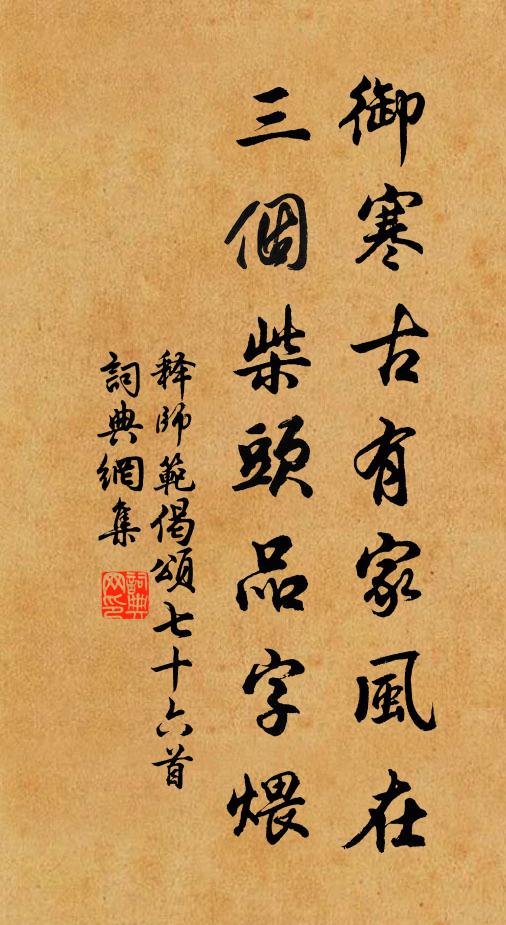 御寒古有家風在
三個柴頭品字煨
释師範偈頌七十六首
詞典網集
詞典网印